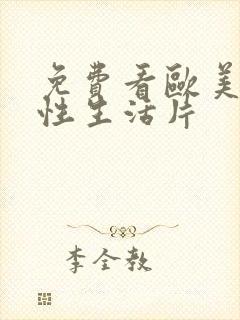 免費看歐美
性生活片
李全教